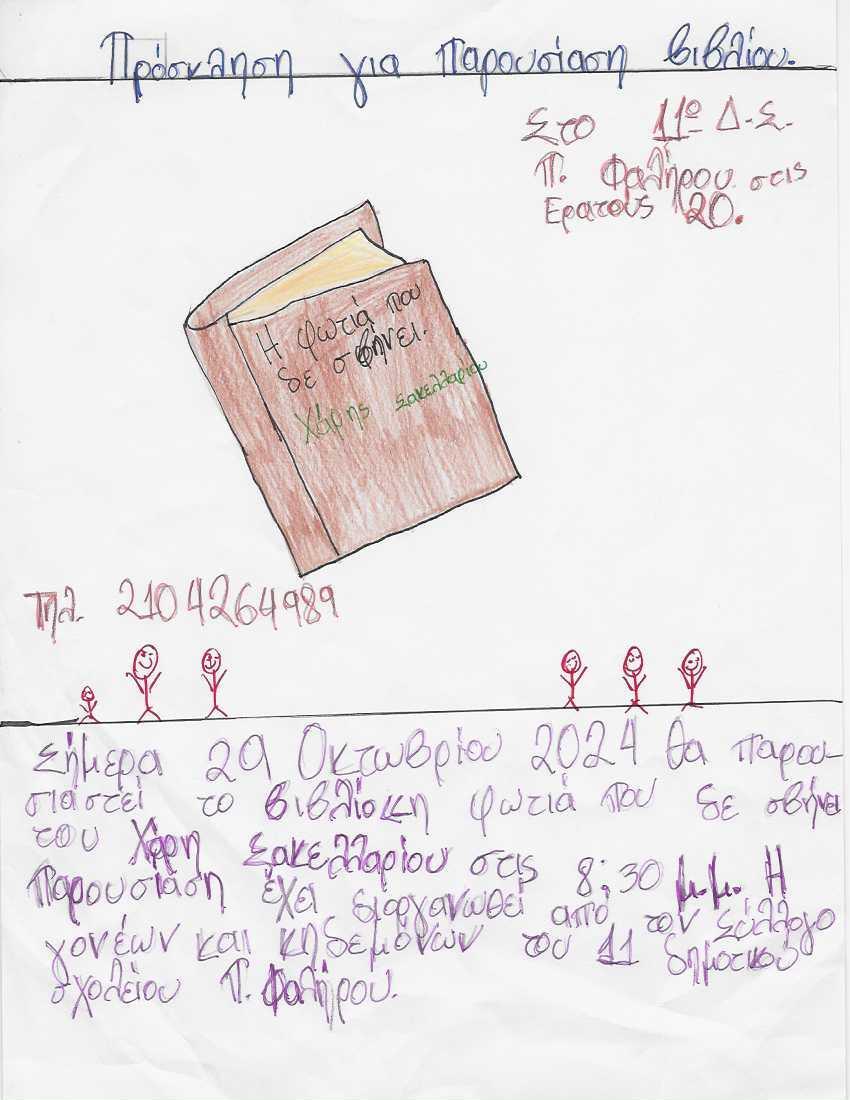 Πρόσκληση για παρουσίαση βιβλίου.
Στο 11º Δ.Σ.
Π. Φαλήρου στις
Ερατους 20.
Η φωτιά που
δε σβήνει.
Χάρης Σακελλαρίου
Τηλ. 2104264989
Σήμερα 29 Οκτωβρίου 2024 θα παρου-
σιαστεί το βιβλίο << η φωτιά που δε σβήνει
του Χάρη Σακελλαρίου στις 8:30 μ.μ. Η
παρουσίαση έχει διοργανωθεί από τον Σύλλογο
γονέων και κηδεμόνων του 11 δημοτικού
σχολείου Π. Φαλήρου.